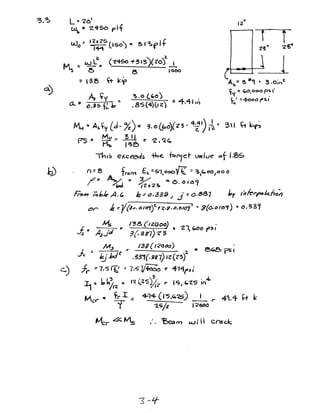 3.3 L = 20'
ω_b = 2450 plf
ω_o = 12x25/144 (150) = 313 plf
M_s = ωL²/8 = (2450+313)(20)²/8 · 1/1000
= 138 ft kip
12"
23" 25"
A_s = 3#9 = 3.0in²
f_y = 60,000psi
f_c' = 4000psi
a) a = A_s f_y/0.85 f_c' b = 3.0(60)/.85(4)(12) = 4.41in
M_u = A_s f_y (d - a/2) = 3.0(60)(23 - 4.41/2) 1/12 = 311 ft kips
FS = M_u/M_s = 311/138 = 2.26
This exceeds the target value of 1.85
b) n=8 from E_c=57,000√f_c' = 3,600,000
ρ = A_s/bd = 3/12x23 = 0.0109
From Table A.6 k=0.339, j=0.887 by interpolation
or k=√(8x.0109)²+2·8·0.0109 - 8(0.0109) = 0.339
f_s = M_s/A_s jd = 138(12000)/3(.887)23 = 27,600 psi
f_c = M_s/kj bd² = 138(12000)/.339(.887)12(23)² = 868 psi
c) f_r = 7.5√f_c' = 7.5√4000 = 474psi
I_g = bh³/12 = 12(25)³/12 = 15,625 in⁴
M_cr = f_r I/Y = 474(15,625)/25/2 · 1/12000 = 49.4 ft k
M_cr << M_s ∴ Beam will crack
3-4